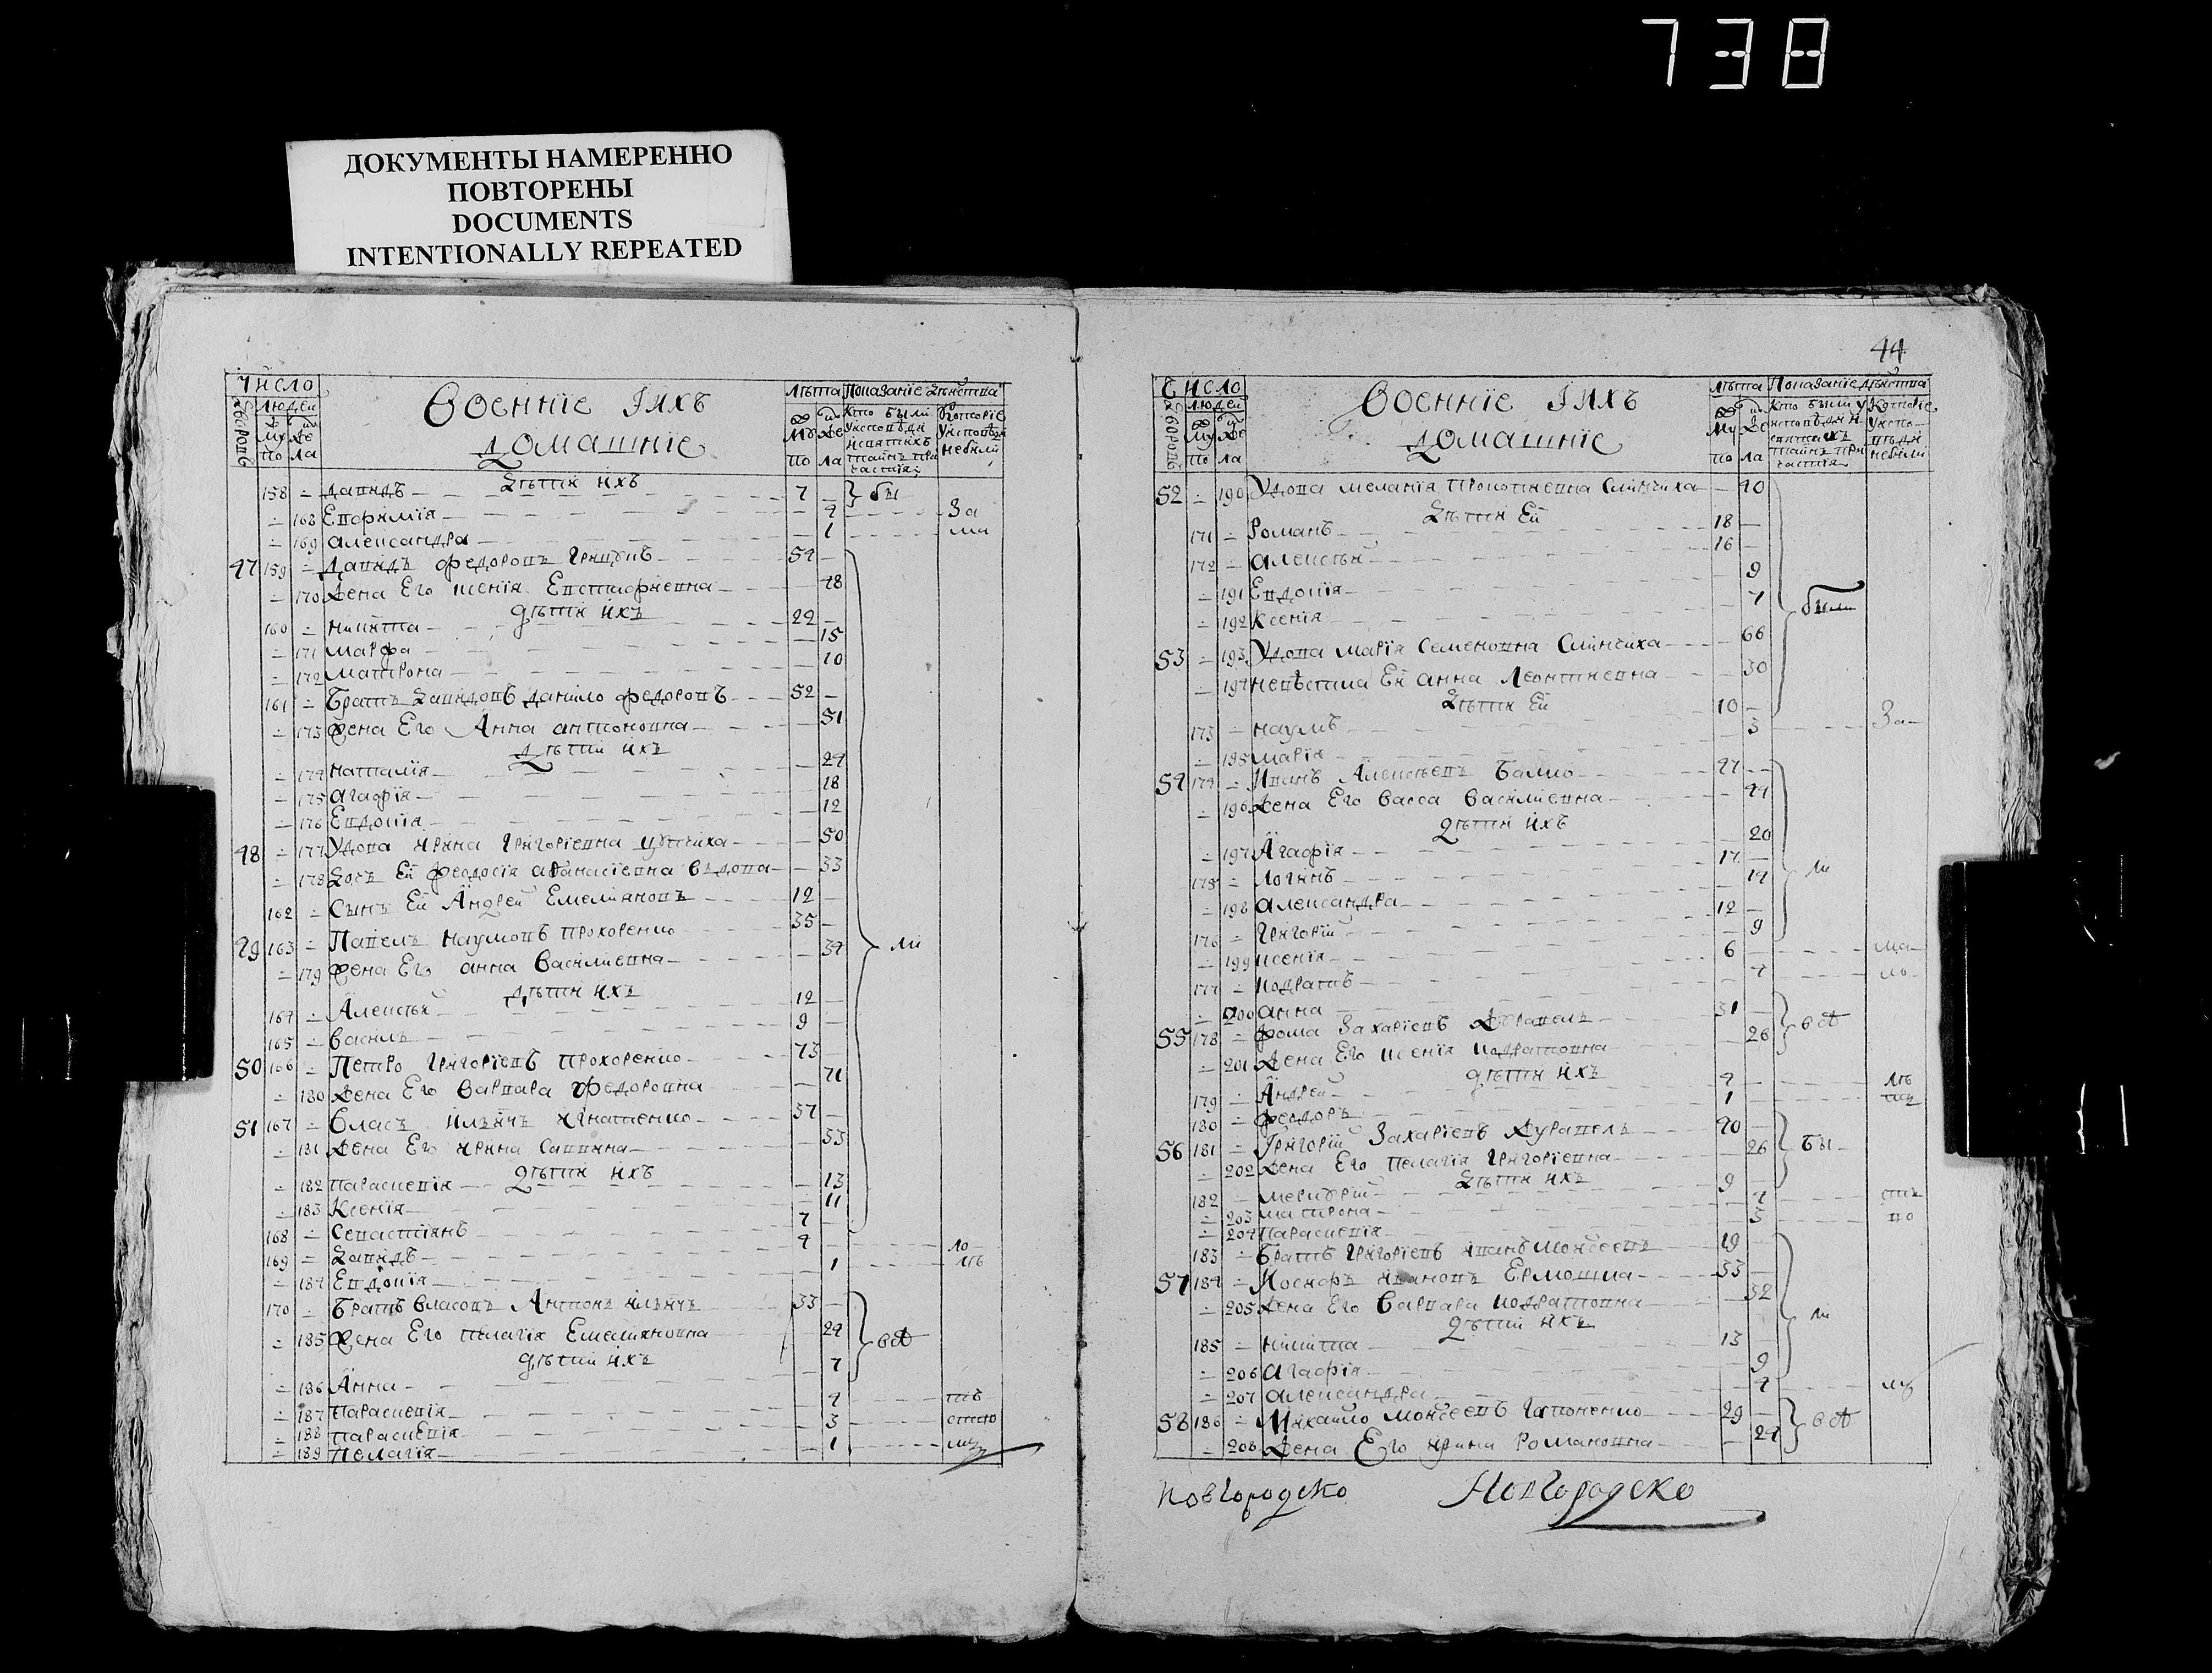 738
ДОКУМЕНТЫ НАМЕРЕННО
ПОВТОРЕНЫ
DOCUMENTS
INTENTIONALLY REPEATED
Число
людей
Военніе їихъ
домашніе
лѣта
Показаніе дѣиства
Кто были
тайнъ при
частія
Которіе
небыли
дѣти ихъ
158 Давидъ 7 } бы
168 Евфимія 4 За
169 александра 1
47 159 Давидъ федоровъ Грицунъ 54
170 Жена Его ксенія Евстафиевна 48
дѣти ихъ
160 никита 22
171 марфа 15
172 матрона 10
161 братъ давидовъ данило федоровъ 52
173 Жена Его Анна антоновна 51
дѣти ихъ
174 наталія 24
175 агафія 18
176 Евдокія 12
48 177 Удова ирина григоріевна 50
178 Дочъ Ей феодосія афанасіевна вдова 33
162 Сынъ Ей Андрей Емелиановъ 12
49 163 Павелъ наумовъ прохоренко 35
179 Жена Его анна василиевна 34 } ли
дѣти ихъ
164 Алексѣй 12
165 василь 9
50 166 Петро григоріевъ прохоренко 73
180 Жена Его варвара федоровна 71
51 167 власъ илъичъ игнатенко 37
181 Жена Его ирина саввина 33
дѣти ихъ
182 параскевія 13
183 Ксенія 11
168 севастіянъ 7
169 давидъ 4 ло
184 Евдокія 1 лѣ
170 братъ власовъ Антонъ илъичъ 33
185 Жена Его пелагія Емелияновна 24
дѣти ихъ
186 Анна 7
187 параскевія 4
188 параскевія 3
189 Пелагія 1
44
Число
людей
Военніе їихъ
домашніе
лѣта
Показаніе дѣиства
Кто были у
тайнъ при
частія
Которіе
небыли
52 190 Удова меланія прокопиевна 40
дѣти Ей
171 Романъ 18
172 алексѣй 16
191 Евдокія 9
192 Ксенія 7 } были
53 193 Удова марія семеновна 66
194 невѣстка Ей анна леонтиевна 30
дѣти Ей
173 наумъ 10
195 марія 3 За
54 174 Иванъ Алексѣевъ Балко 47
196 Жена Его васса василиевна 44
дѣти ихъ
197 Агафія 20
175 логинъ 17
198 александра 14 } ли
176 григорій 12
199 ксенія 9
177 кодратъ 6
200 анна 4
55 178 фома Захаріевъ Журавель 31
201 Жена Его ксенія кодратовна 26
дѣти ихъ
179 Андрей 4
180 феодоръ 1
56 181 Григорій Захаріевъ Журавель 40 } бы
202 Жена Его пелагія григоріевна 26
дѣти ихъ
182 меркурій 9
203 матрона
204 параскевія
183 братъ григоріевъ иванъ моисеевъ 19
57 184 Иосифъ ивановъ Ермошка 33
205 Жена Его варвара кодратовна 32
дѣти ихъ } ли
185 никита 13
206 агафія 9
207 александра 4
58 186 Михайло моисеевъ 29
208 Жена Его ирина романовна 24
Новгородско Новгородско